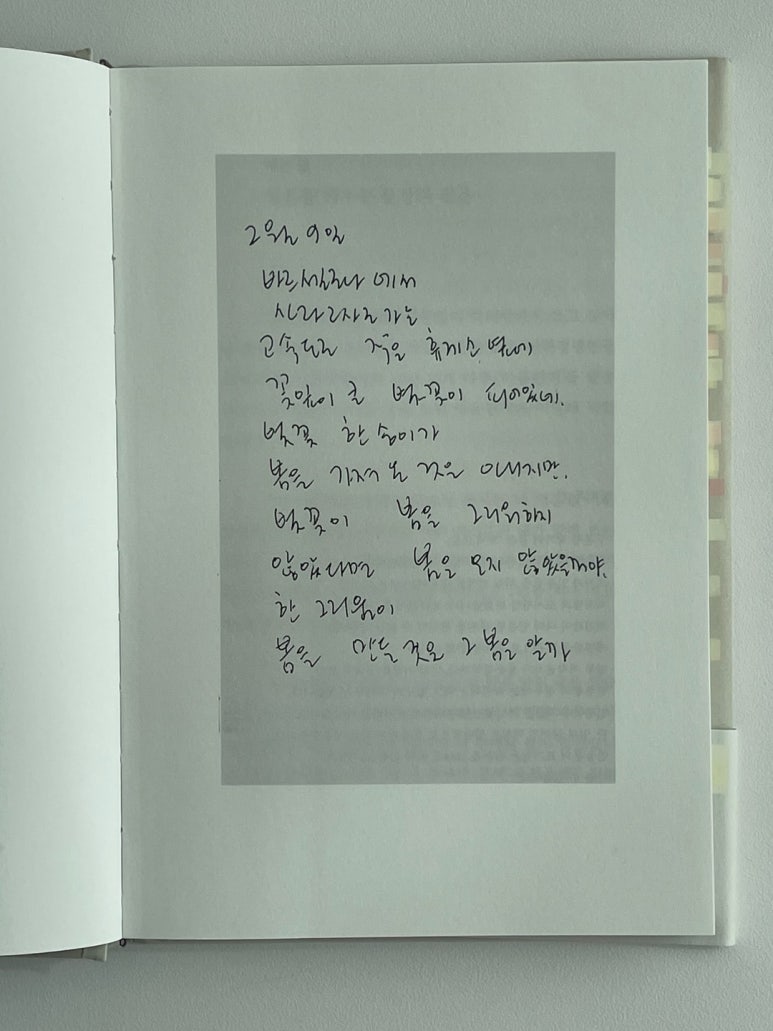 2월 9일
바르셀로나에서
사라고사로 가는
고속도로 작은 휴게소 옆에
꽃잎이 큰 벚꽃이 피어있네.
벚꽃 한 송이가
봄을 가져온 것은 아니지만.
벚꽃이 봄을 그리워하지
않았다면 봄은 오지 않았을꺼야.
한 그리움이
봄을 만든 것을 그 봄은 알까